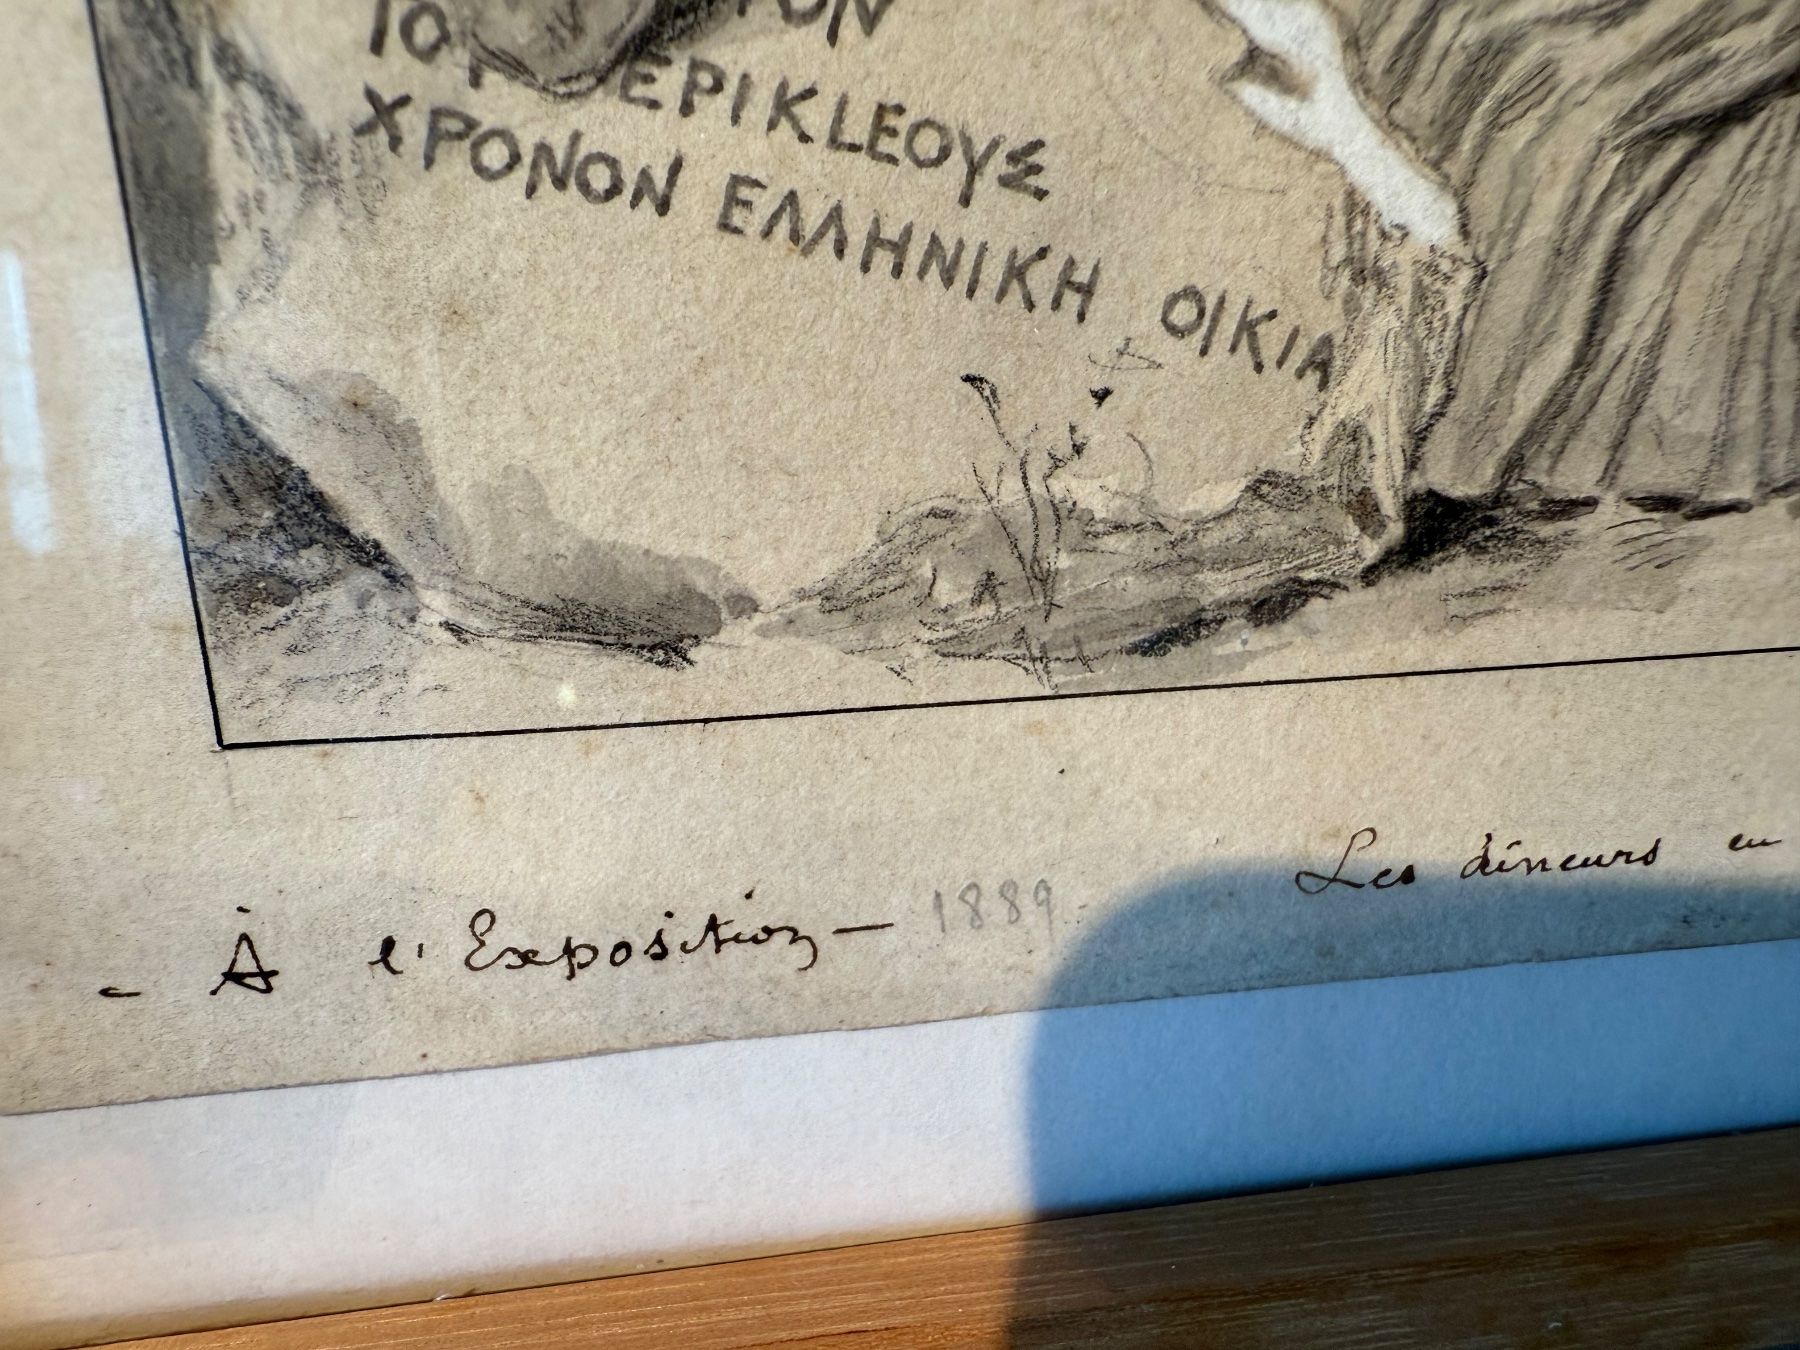 ΤΟΥ ΠΕΡΙΚLΕΟΥΣ
ΧΡΟΝΟΝ ΕΛΛΗΝΙΚΗ ΟΙΚΙΑ
- À l'Exposition — 1889
Les dîneurs en